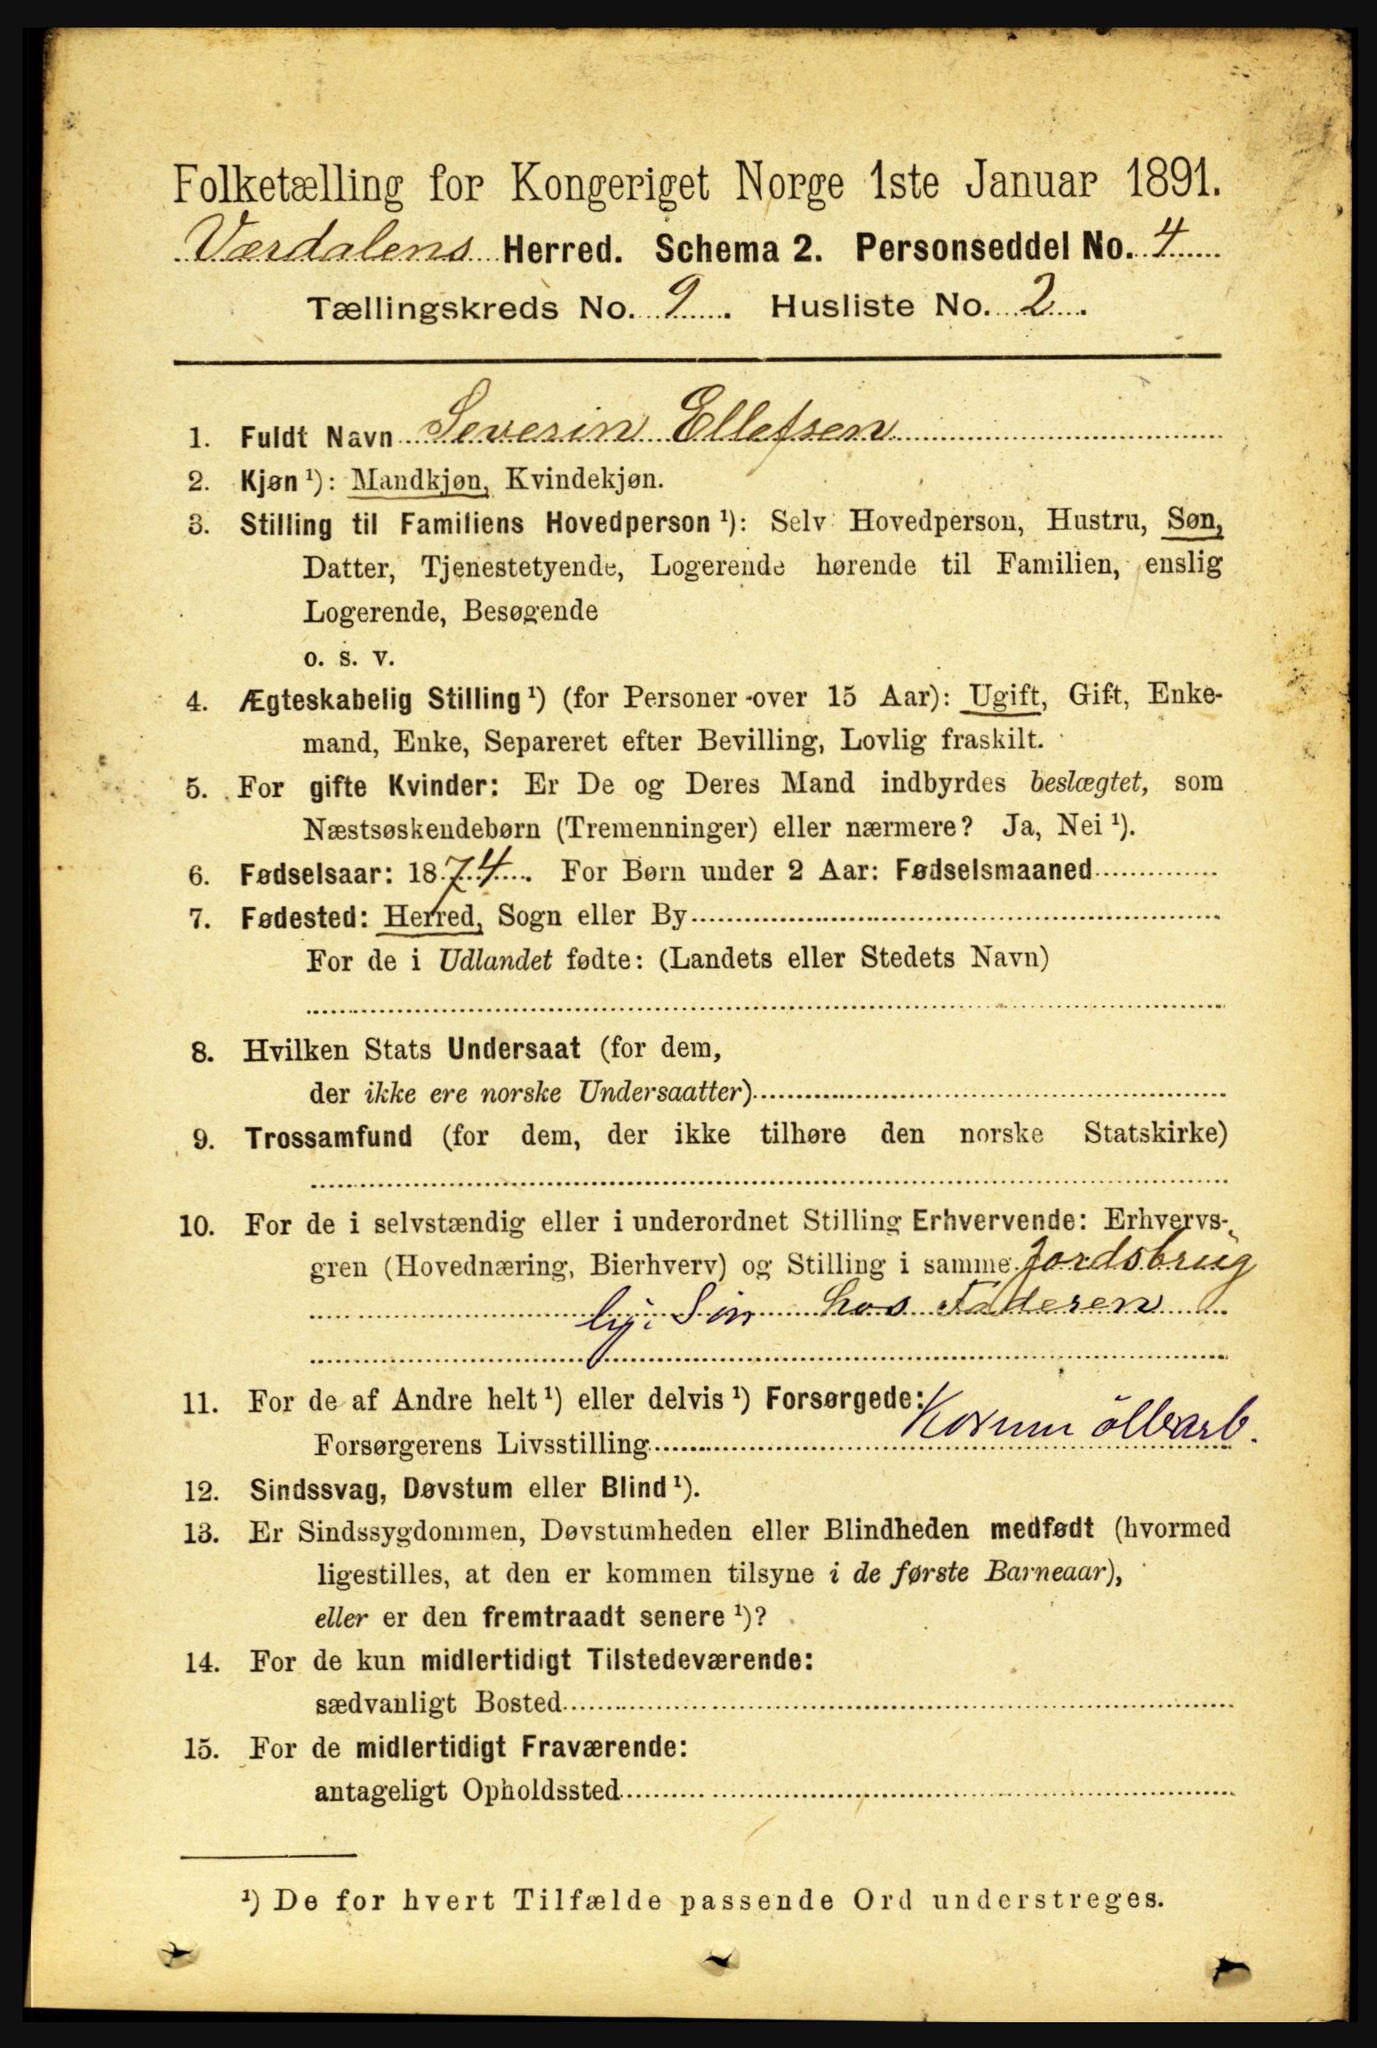 Folketælling for Kongeriget Norge 1ste Januar 1891.
Værdalens Herred. Schema 2. Personseddel No. 4
Tællingskreds No. 9. Husliste No. 2.
1. Fuldt Navn Severin Ellefsen
2. Kjøn ¹): Mandkjøn, Kvindekjøn.
3. Stilling til Familiens Hovedperson ¹): Selv Hovedperson, Hustru, Søn,
Datter, Tjenestetyende, Logerende hørende til Familien, enslig
Logerende, Besøgende
o. s. v.
4. Ægteskabelig Stilling ¹) (for Personer over 15 Aar): Ugift, Gift, Enke-
mand, Enke, Separeret efter Bevilling, Lovlig fraskilt.
5. For gifte Kvinder: Er De og Deres Mand indbyrdes beslægtet, som
Næstsøskendebørn (Tremenninger) eller nærmere? Ja, Nei ¹).
6. Fødselsaar: 1874. For Børn under 2 Aar: Fødselsmaaned
7. Fødested: Herred, Sogn eller By
For de i Udlandet fødte: (Landets eller Stedets Navn)
8. Hvilken Stats Undersaat (for dem,
der ikke ere norske Undersaatter)
9. Trossamfund (for dem, der ikke tilhøre den norske Statskirke)
10. For de i selvstændig eller i underordnet Stilling Erhvervende: Erhvervs-
gren (Hovednæring, Bierhverv) og Stilling i samme Jordsbrug
Søn hos Faderen
11. For de af Andre helt ¹) eller delvis ¹) Forsørgede:
Forsørgerens Livsstilling
12. Sindssvag, Døvstum eller Blind ¹).
13. Er Sindssygdommen, Døvstumheden eller Blindheden medfødt (hvormed
ligestilles, at den er kommen tilsyne i de første Barneaar),
eller er den fremtraadt senere ¹)?
14. For de kun midlertidigt Tilstedeværende:
sædvanligt Bosted
15. For de midlertidigt Fraværende:
antageligt Opholdssted
¹) De for hvert Tilfælde passende Ord understreges.